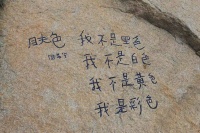 肤色
我不是黑色
我不是白色
我不是黄色
我是彩色